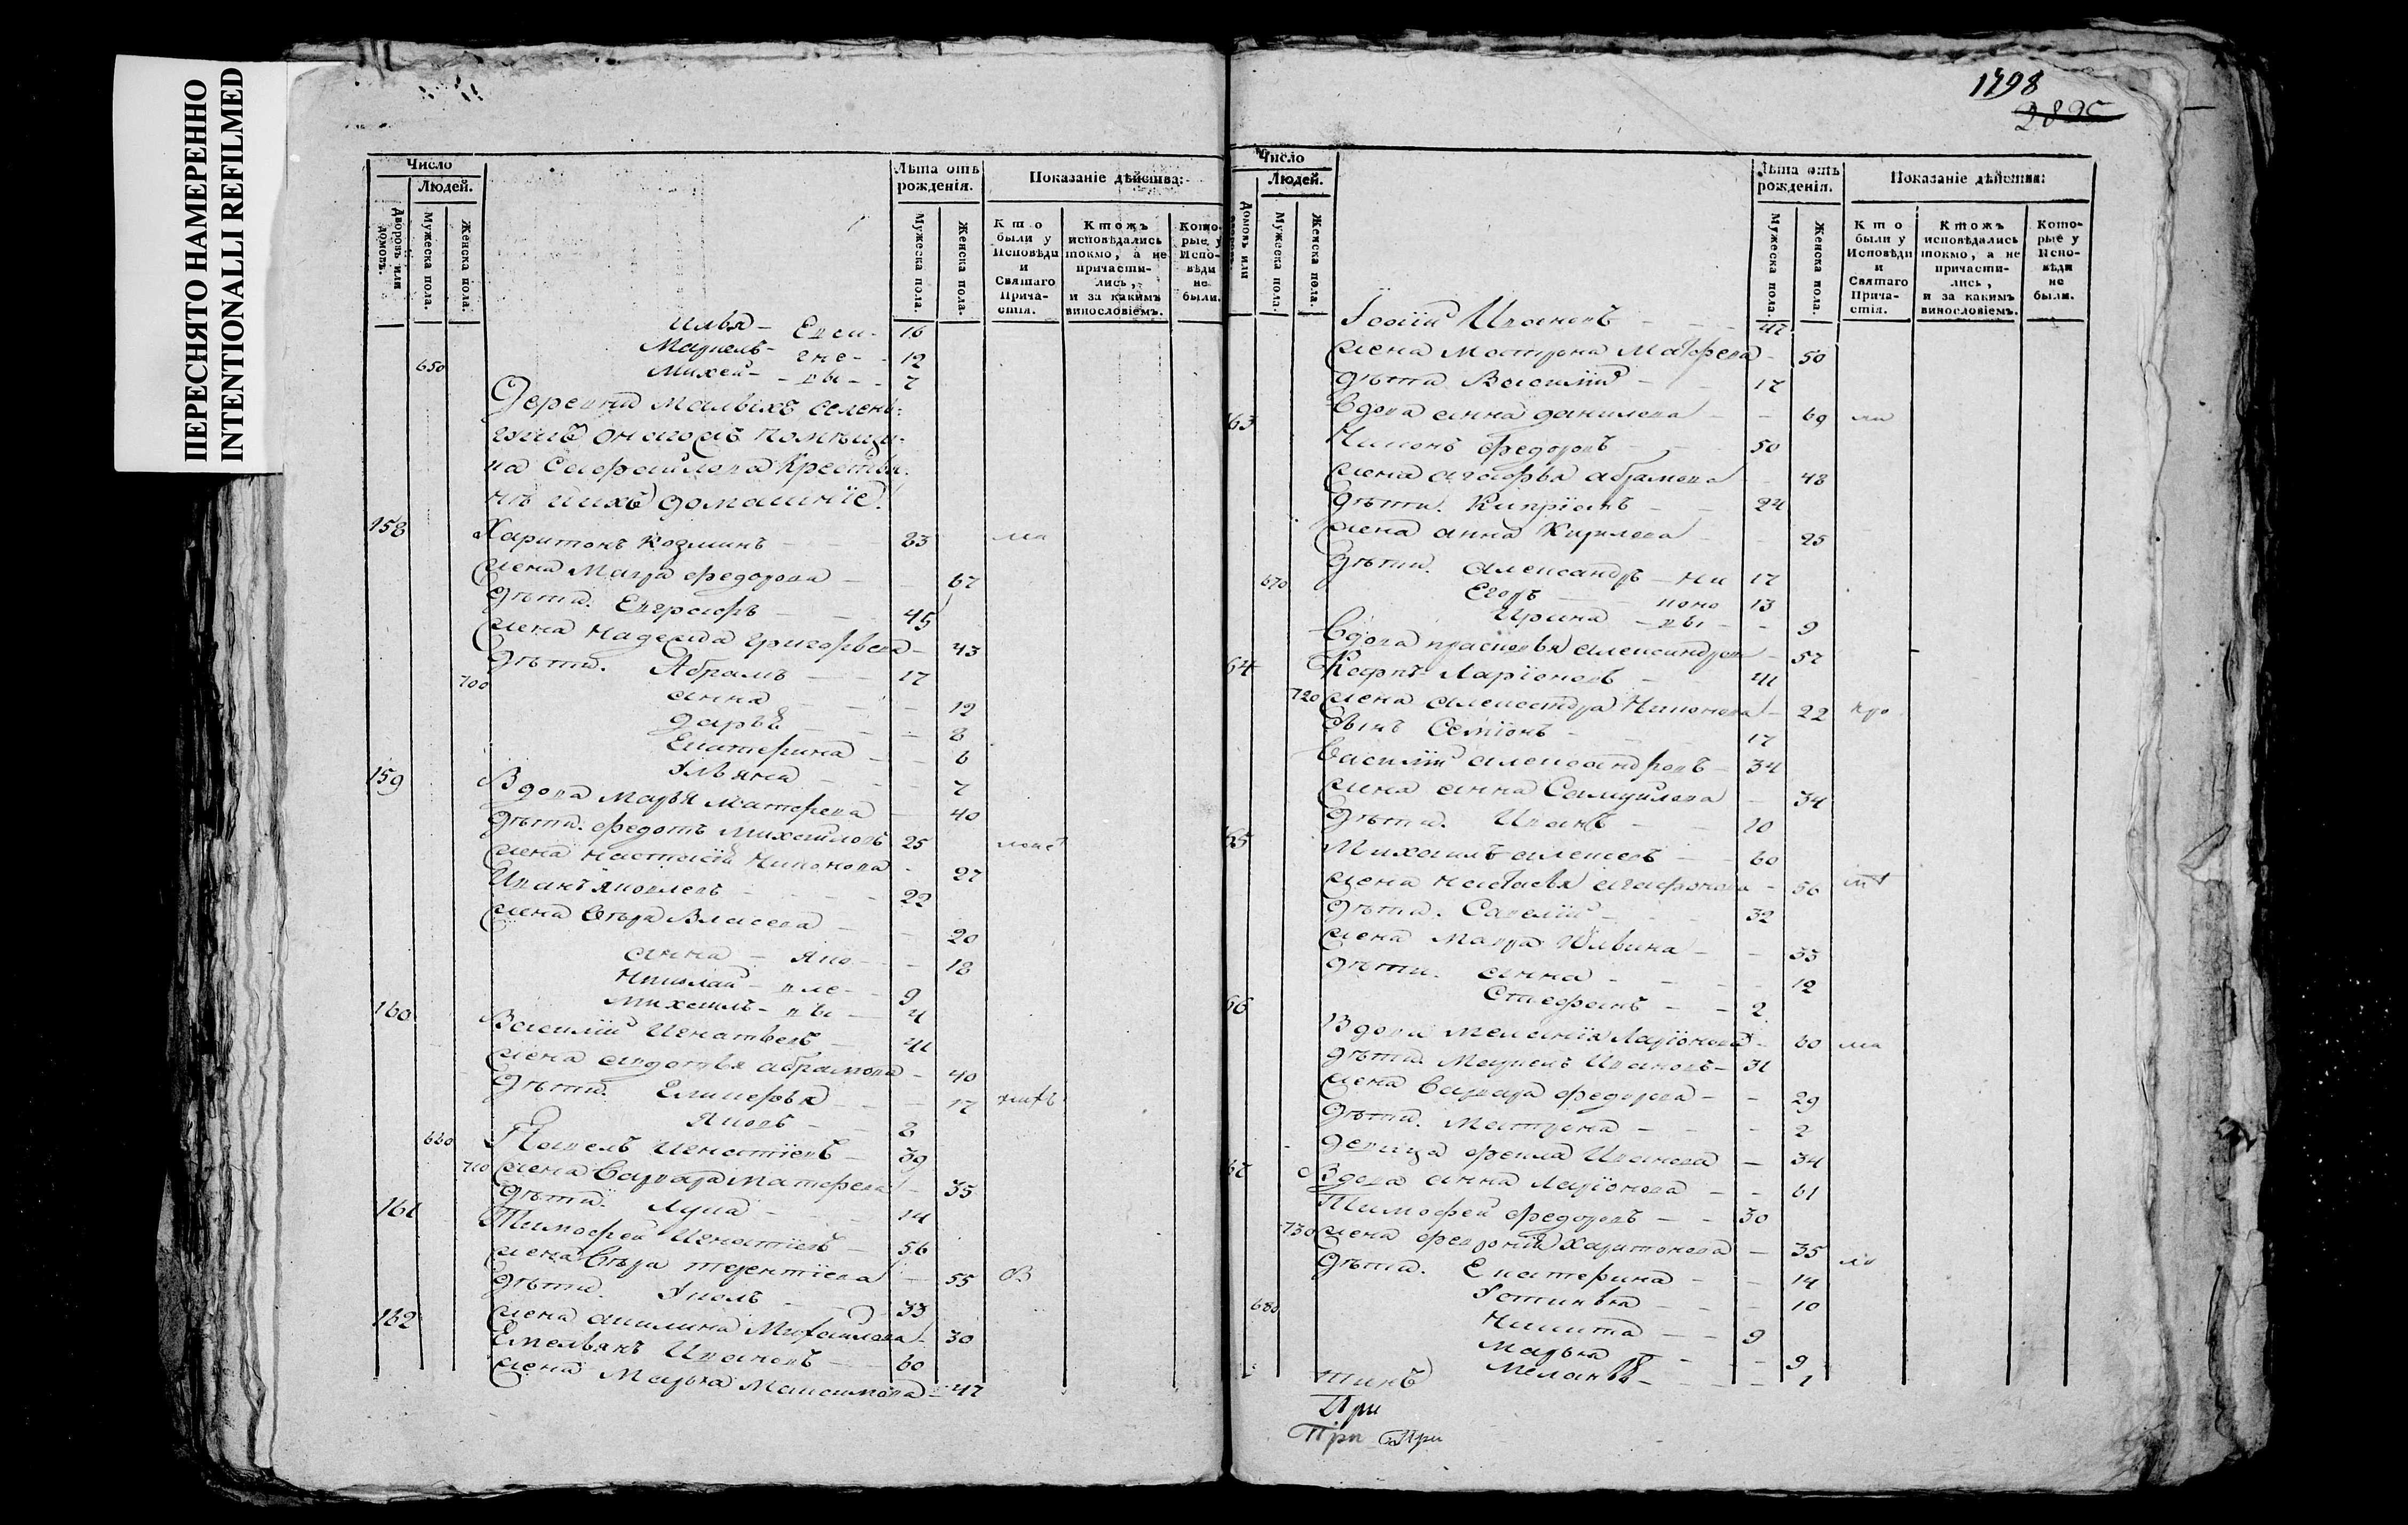 ПЕРЕСНЯТО НАМЕРЕННО
INTENTIONALLI REFILMED
Число
Людей.
Дворовъ или домовъ.
Мужеска пола.
Женска пола.
Лѣта отъ рожденія.
Мужеска пола.
Женска пола.
Показаніе дѣйства:
Кто были у Исповѣди и Святаго Причастія.
Ктожъ исповѣдались токмо, а не причастились, и за какимъ винословіемъ.
Которые у Исповѣди не были.
Илья – Евси – 16
Маркелъ – гне – 12
650 Михей – вы – 7
Деревни Малыхъ селени
онагожъ помѣщи
ка Самойлова крестья
нѣ ихъ домашніе
158 Харитонъ Козминъ 83
жена Мавра Федорова 67
дѣти. Евграфъ 45
жена Надежда Григорьева 43
дѣти. Абрамъ 17
700 Анна 12
Дарья 8
Екатерина 6
Ульяна 7
159 Вдова Марья Матфеева 40
дѣти. Федотъ Михайловъ 25
жена Настасія Никонова 27
Иванъ Яковлевъ 22
жена Вѣра Власова 20
Анна – Яко 18
Николай – вле 9
Михаилъ – вы 4
160 Василій Игнатьевъ 41
жена Авдотья Абрамова 40
дѣти. Гликерья 17
Яковъ 8
660 Павелъ Игнатіевъ 39
710 жена Варвара Матфеева 35
дѣти. Лука 14
161 Тимофей Игнатіевъ 56
жена Вѣра Терентіева 55
дѣти. 33
жена Акилина Михайлова 30
162 Емельянъ Ивановъ 60
жена Марья Максимова 47
1298
2895
Число
Людей.
Домовъ или
Мужеска пола.
Женска пола.
Лѣта отъ рожденія.
Мужеска пола.
Женска пола.
Показаніе дѣйства:
Кто были у Исповѣди и Святаго Причастія.
Ктожъ исповѣдались токмо, а не причастились, и за какимъ винословіемъ.
Которые у Исповѣди не были.
Ивановъ 47
жена Матрона Матфеева 50
дѣти Василій 17
63 Вдова Анна Данилова 69
Никонъ Федоровъ 50
жена Агафья Абрамова 48
дѣти. Кипріанъ 24
жена Анна Кирилова 25
дѣти. Александръ – Ни 17
670 Егоръ коно 13
Ирина – вы 9
Вдова Прасковья Александрова 57
64 Ларіоновъ 41
720 жена Александра Никонова 22
сынъ Семіонъ 17
Василій Александровъ 34
жена Анна Самуилова 34
дѣти. Иванъ 10
65 Михаилъ Алексеевъ 60
жена Настасья Агафонова 56
дѣти. Савелій 32
жена Мавра Ильина 33
дѣти. Анна 12
Стефанъ 2
66 Вдова Меланія Ларіонова 60
дѣти. Маркелъ Ивановъ 31
жена Варвара Федорова 29
дѣти. Матрона 2
девица Фекла Иванова 34
67 Вдова Анна Ларіонова 61
Тимофей Федоровъ 30
730 жена Февронія Харитонова 35
дѣти. Екатерина 14
Устинья 10
680 Никита 9
Марья 9
Меланья 1
При
При При